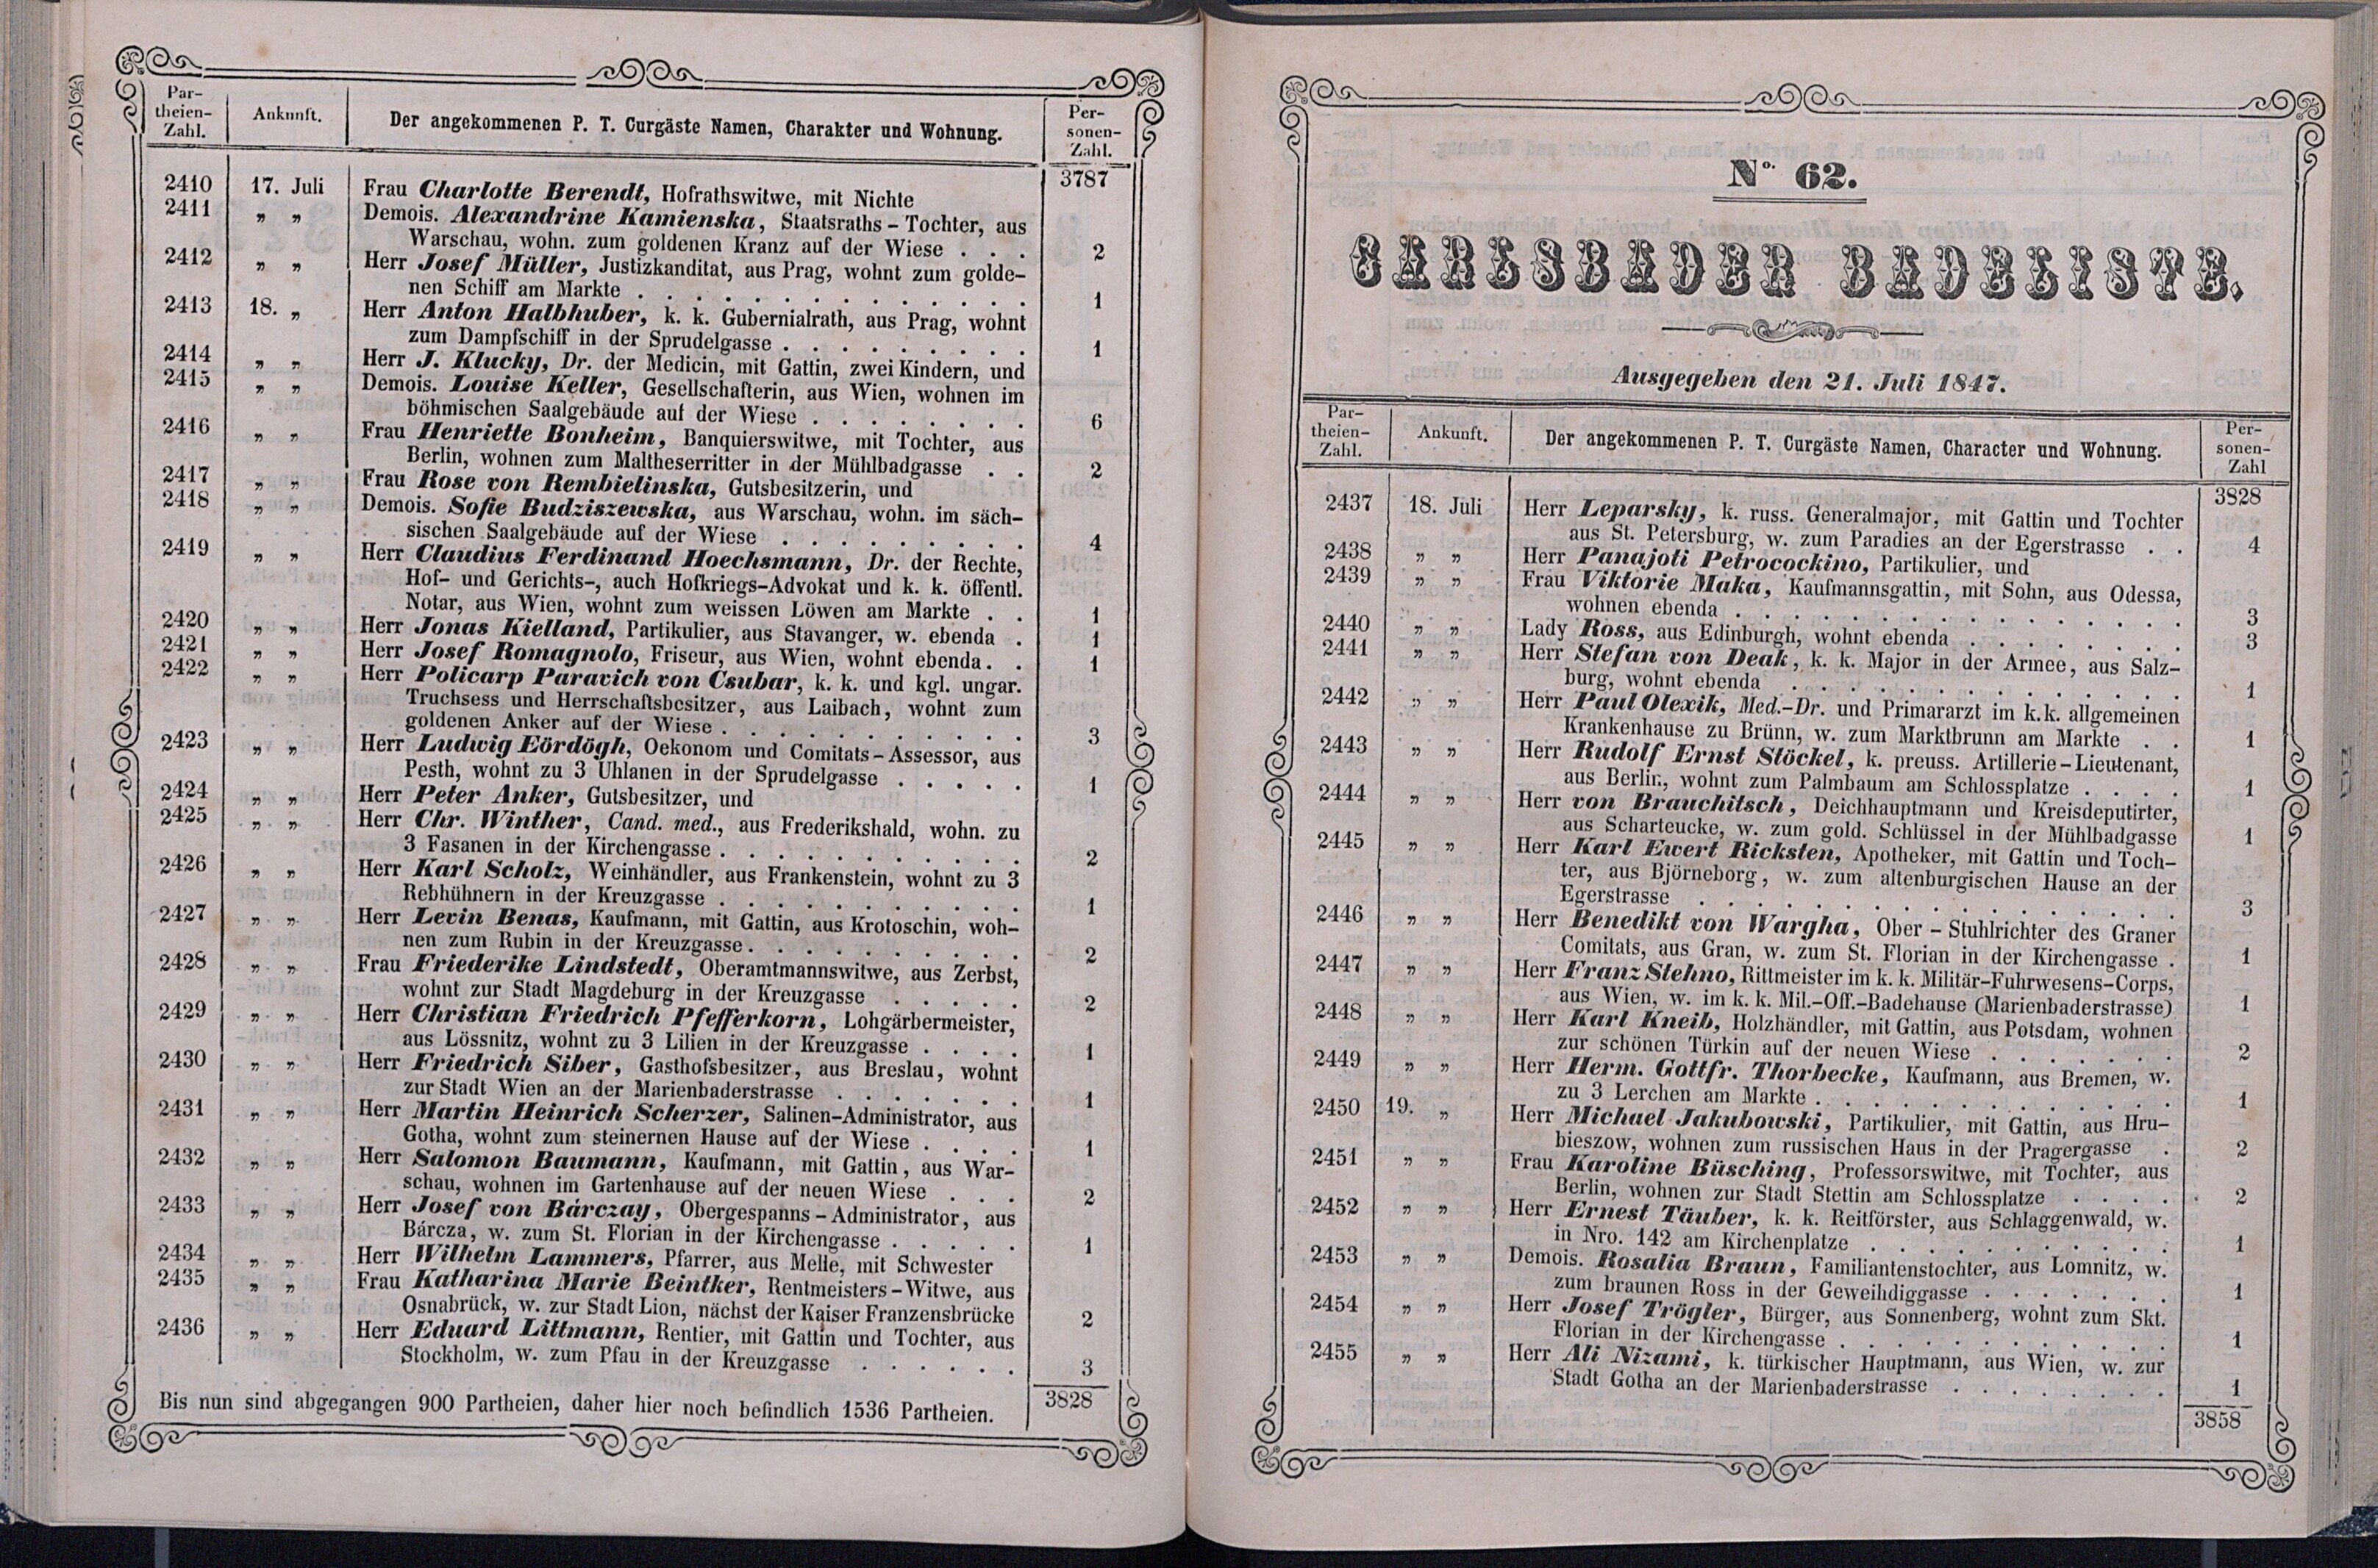 Par-
theien-
Zahl.
Ankunft.
Der angekommenen P. T. Curgäste Namen, Charakter und Wohnung.
Per-
sonen-
Zahl.
3787
2410 17. Juli Frau Charlotte Berendt, Hofrathswitwe, mit Nichte
2411 „ „ Demois. Alexandrine Kamienska, Staatsraths-Tochter, aus
Warschau, wohn. zum goldenen Kranz auf der Wiese . . . 2
2412 „ „ Herr Josef Müller, Justizkanditat, aus Prag, wohnt zum golde-
nen Schiff am Markte . . . . . . . . . . . . . 1
2413 18. „ Herr Anton Halbhuber, k. k. Gubernialrath, aus Prag, wohnt
zum Dampfschiff in der Sprudelgasse . . . . . . . . . 1
2414 „ „ Herr J. Klucky, Dr. der Medicin, mit Gattin, zwei Kindern, und
2415 „ „ Demois. Louise Keller, Gesellschafterin, aus Wien, wohnen im
böhmischen Saalgebäude auf der Wiese . . . . . . . . 6
2416 „ „ Frau Henriette Bonheim, Banquierswitwe, mit Tochter, aus
Berlin, wohnen zum Maltheserritter in der Mühlbadgasse . . 2
2417 „ „ Frau Rose von Rembielinska, Gutsbesitzerin, und
2418 „ „ Demois. Sofie Budziszewska, aus Warschau, wohn. im säch-
sischen Saalgebäude auf der Wiese . . . . . . . . . 4
2419 „ „ Herr Claudius Ferdinand Hoechsmann, Dr. der Rechte,
Hof- und Gerichts-, auch Hofkriegs-Advokat und k. k. öffentl.
Notar, aus Wien, wohnt zum weissen Löwen am Markte . . 1
2420 „ „ Herr Jonas Kielland, Partikulier, aus Stavanger, w. ebenda . 1
2421 „ „ Herr Josef Romagnolo, Friseur, aus Wien, wohnt ebenda. . 1
2422 „ „ Herr Policarp Paravich von Csubar, k. k. und kgl. ungar.
Truchsess und Herrschaftsbesitzer, aus Laibach, wohnt zum
goldenen Anker auf der Wiese . . . . . . . . . . . 3
2423 „ „ Herr Ludwig Eördögh, Oekonom und Comitats-Assessor, aus
Pesth, wohnt zu 3 Uhlanen in der Sprudelgasse . . . . . 1
2424 „ „ Herr Peter Anker, Gutsbesitzer, und
2425 „ „ Herr Chr. Winther, Cand. med., aus Frederikshald, wohn. zu
3 Fasanen in der Kirchengasse . . . . . . . . . . . 2
2426 „ „ Herr Karl Scholz, Weinhändler, aus Frankenstein, wohnt zu 3
Rebhühnern in der Kreuzgasse . . . . . . . . . . . 1
2427 „ „ Herr Levin Benas, Kaufmann, mit Gattin, aus Krotoschin, woh-
nen zum Rubin in der Kreuzgasse. . . . . . . . . . 2
2428 „ „ Frau Friederike Lindstedt, Oberamtmannswitwe, aus Zerbst,
wohnt zur Stadt Magdeburg in der Kreuzgasse . . . . . 2
2429 „ „ Herr Christian Friedrich Pfefferkorn, Lohgärbermeister,
aus Lössnitz, wohnt zu 3 Lilien in der Kreuzgasse . . . . 1
2430 „ „ Herr Friedrich Siber, Gasthofsbesitzer, aus Breslau, wohnt
zur Stadt Wien an der Marienbaderstrasse . . . . . . . 1
2431 „ „ Herr Martin Heinrich Scherzer, Salinen-Administrator, aus
Gotha, wohnt zum steinernen Hause auf der Wiese . . . . 1
2432 „ „ Herr Salomon Baumann, Kaufmann, mit Gattin, aus War-
schau, wohnen im Gartenhause auf der neuen Wiese . . . 2
2433 „ „ Herr Josef von Bárczay, Obergespanns-Administrator, aus
Bárcza, w. zum St. Florian in der Kirchengasse . . . . . 1
2434 „ „ Herr Wilhelm Lammers, Pfarrer, aus Melle, mit Schwester
2435 „ „ Frau Katharina Marie Beintker, Rentmeisters-Witwe, aus
Osnabrück, w. zur Stadt Lion, nächst der Kaiser Franzensbrücke 2
2436 „ „ Herr Eduard Littmann, Rentier, mit Gattin und Tochter, aus
Stockholm, w. zum Pfau in der Kreuzgasse . . . . . . 3
Bis nun sind abgegangen 900 Partheien, daher hier noch befindlich 1536 Partheien. 3828
No. 62.
CARLSBADER BADELISTE.
Ausgegeben den 21. Juli 1847.
Par-
theien-
Zahl.
Ankunft.
Der angekommenen P. T. Curgäste Namen, Character und Wohnung.
Per-
sonen-
Zahl
3828
2437 18. Juli Herr Leparsky, k. russ. Generalmajor, mit Gattin und Tochter
aus St. Petersburg, w. zum Paradies an der Egerstrasse . . 4
2438 „ „ Herr Panajoti Petrocockino, Partikulier, und
2439 „ „ Frau Viktorie Maka, Kaufmannsgattin, mit Sohn, aus Odessa,
wohnen ebenda . . . . . . . . . . . . . . . 3
2440 „ „ Lady Ross, aus Edinburgh, wohnt ebenda . . . . . . . 3
2441 „ „ Herr Stefan von Deak, k. k. Major in der Armee, aus Salz-
burg, wohnt ebenda . . . . . . . . . . . . . 1
2442 „ „ Herr Paul Olexik, Med.-Dr. und Primararzt im k. k. allgemeinen
Krankenhause zu Brünn, w. zum Marktbrunn am Markte . . 1
2443 „ „ Herr Rudolf Ernst Stöckel, k. preuss. Artillerie-Lieutenant,
aus Berlin, wohnt zum Palmbaum am Schlossplatze . . . . 1
2444 „ „ Herr von Brauchitsch, Deichhauptmann und Kreisdeputirter,
aus Scharteucke, w. zum gold. Schlüssel in der Mühlbadgasse 1
2445 „ „ Herr Karl Ewert Ricksten, Apotheker, mit Gattin und Toch-
ter, aus Björneborg, w. zum altenburgischen Hause an der
Egerstrasse . . . . . . . . . . . . . . . . . 3
2446 „ „ Herr Benedikt von Wargha, Ober-Stuhlrichter des Graner
Comitats, aus Gran, w. zum St. Florian in der Kirchengasse . 1
2447 „ „ Herr Franz Stehno, Rittmeister im k. k. Militär-Fuhrwesens-Corps,
aus Wien, w. im k. k. Mil.-Off.-Badehause (Marienbaderstrasse) 1
2448 „ „ Herr Karl Kneib, Holzhändler, mit Gattin, aus Potsdam, wohnen
zur schönen Türkin auf der neuen Wiese . . . . . . . 2
2449 „ „ Herr Herm. Gottfr. Thorbecke, Kaufmann, aus Bremen, w.
zu 3 Lerchen am Markte . . . . . . . . . . . . . 1
2450 19. „ Herr Michael Jakubowski, Partikulier, mit Gattin, aus Hru-
bieszow, wohnen zum russischen Haus in der Pragergasse . 2
2451 „ „ Frau Karoline Büsching, Professorswitwe, mit Tochter, aus
Berlin, wohnen zur Stadt Stettin am Schlossplatze . . . . 2
2452 „ „ Herr Ernest Täuber, k. k. Reitförster, aus Schlaggenwald, w.
in Nro. 142 am Kirchenplatze . . . . . . . . . . . 1
2453 „ „ Demois. Rosalia Braun, Familiantenstochter, aus Lomnitz, w.
zum braunen Ross in der Geweihdiggasse . . . . . . . 1
2454 „ „ Herr Josef Trögler, Bürger, aus Sonnenberg, wohnt zum Skt.
Florian in der Kirchengasse . . . . . . . . . . . . 1
2455 „ „ Herr Ali Nizami, k. türkischer Hauptmann, aus Wien, w. zur
Stadt Gotha an der Marienbaderstrasse . . . . . . . . 1
3858